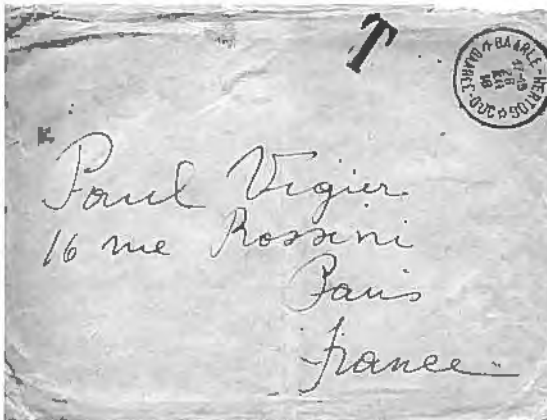 T
BAARLE-HERTOG
BAARLE-DUC
Paul Vigier
16 rue Rossini
Paris
France